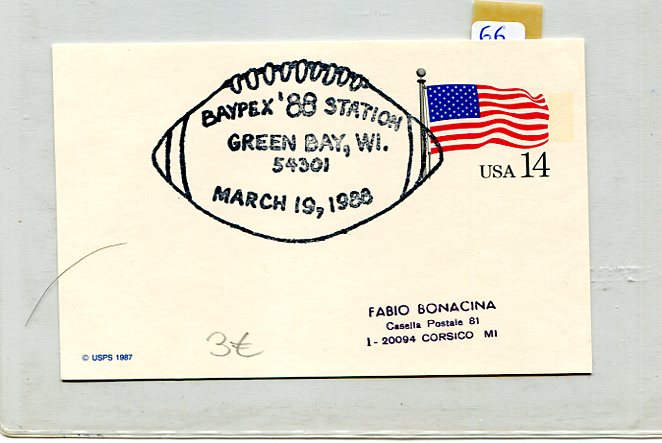 66
BAYPEX '88 STATION
GREEN BAY, WI.
54301
MARCH 19, 1988
USA 14
FABIO BONACINA
Casella Postale 81
I - 20094 CORSICO MI
3€
© USPS 1987